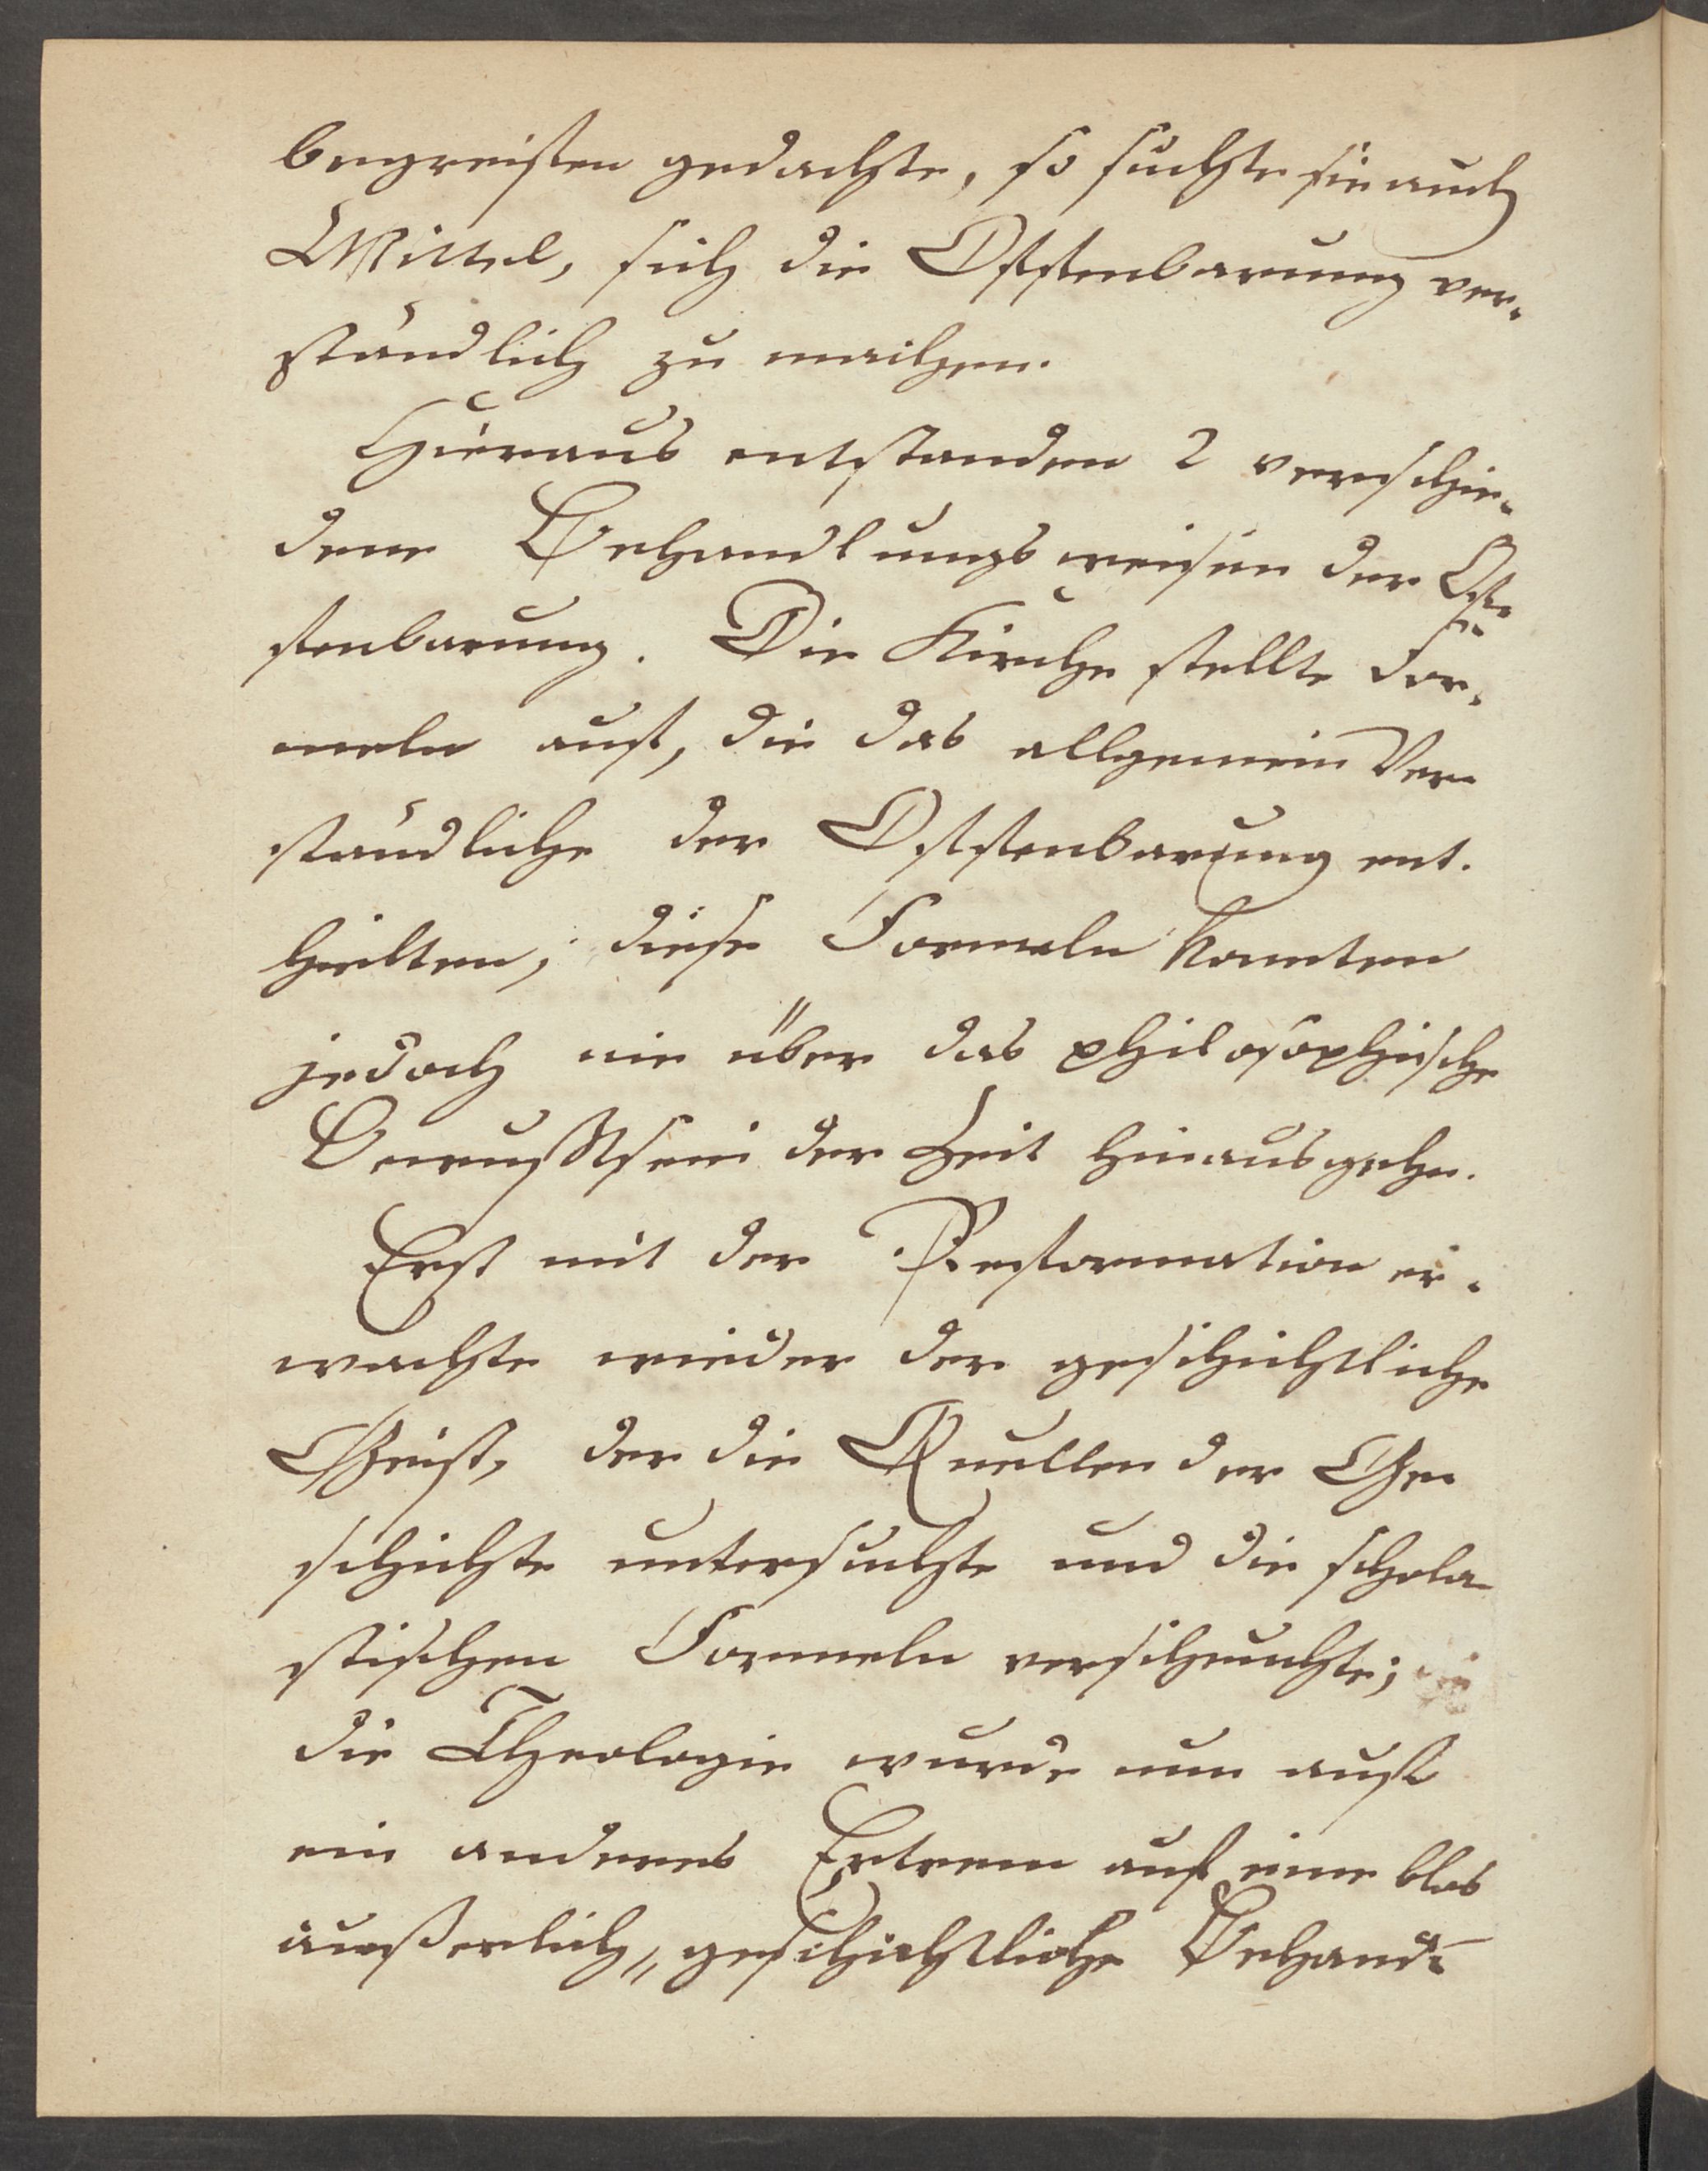 begreifen gedachte, so suchte sie auch
Mittel, sich die Offenbarung ver-
ständlich zu machen.
Hieraus entstanden 2 verschie-
dene Behandlungsweisen der Of-
fenbarung. Die Kirche stellte For-
meln auf, die das allgemein Ver-
ständliche der Offenbarung ent-
hielten; diese Formeln konnten
jedoch nie über das philosophische
Bewußtsein der Zeit hinausgehn.
Erst mit der Reformation er-
wachte wieder der geschichtliche
Geist, der die Quellen der Ge-
schichte untersuchte und die schola-
stischen Formeln verscheuchte;
die Theologie wurde nun auf
ein anderes Extrem auf eine blos
äußerlich, geschichtliche Behand-